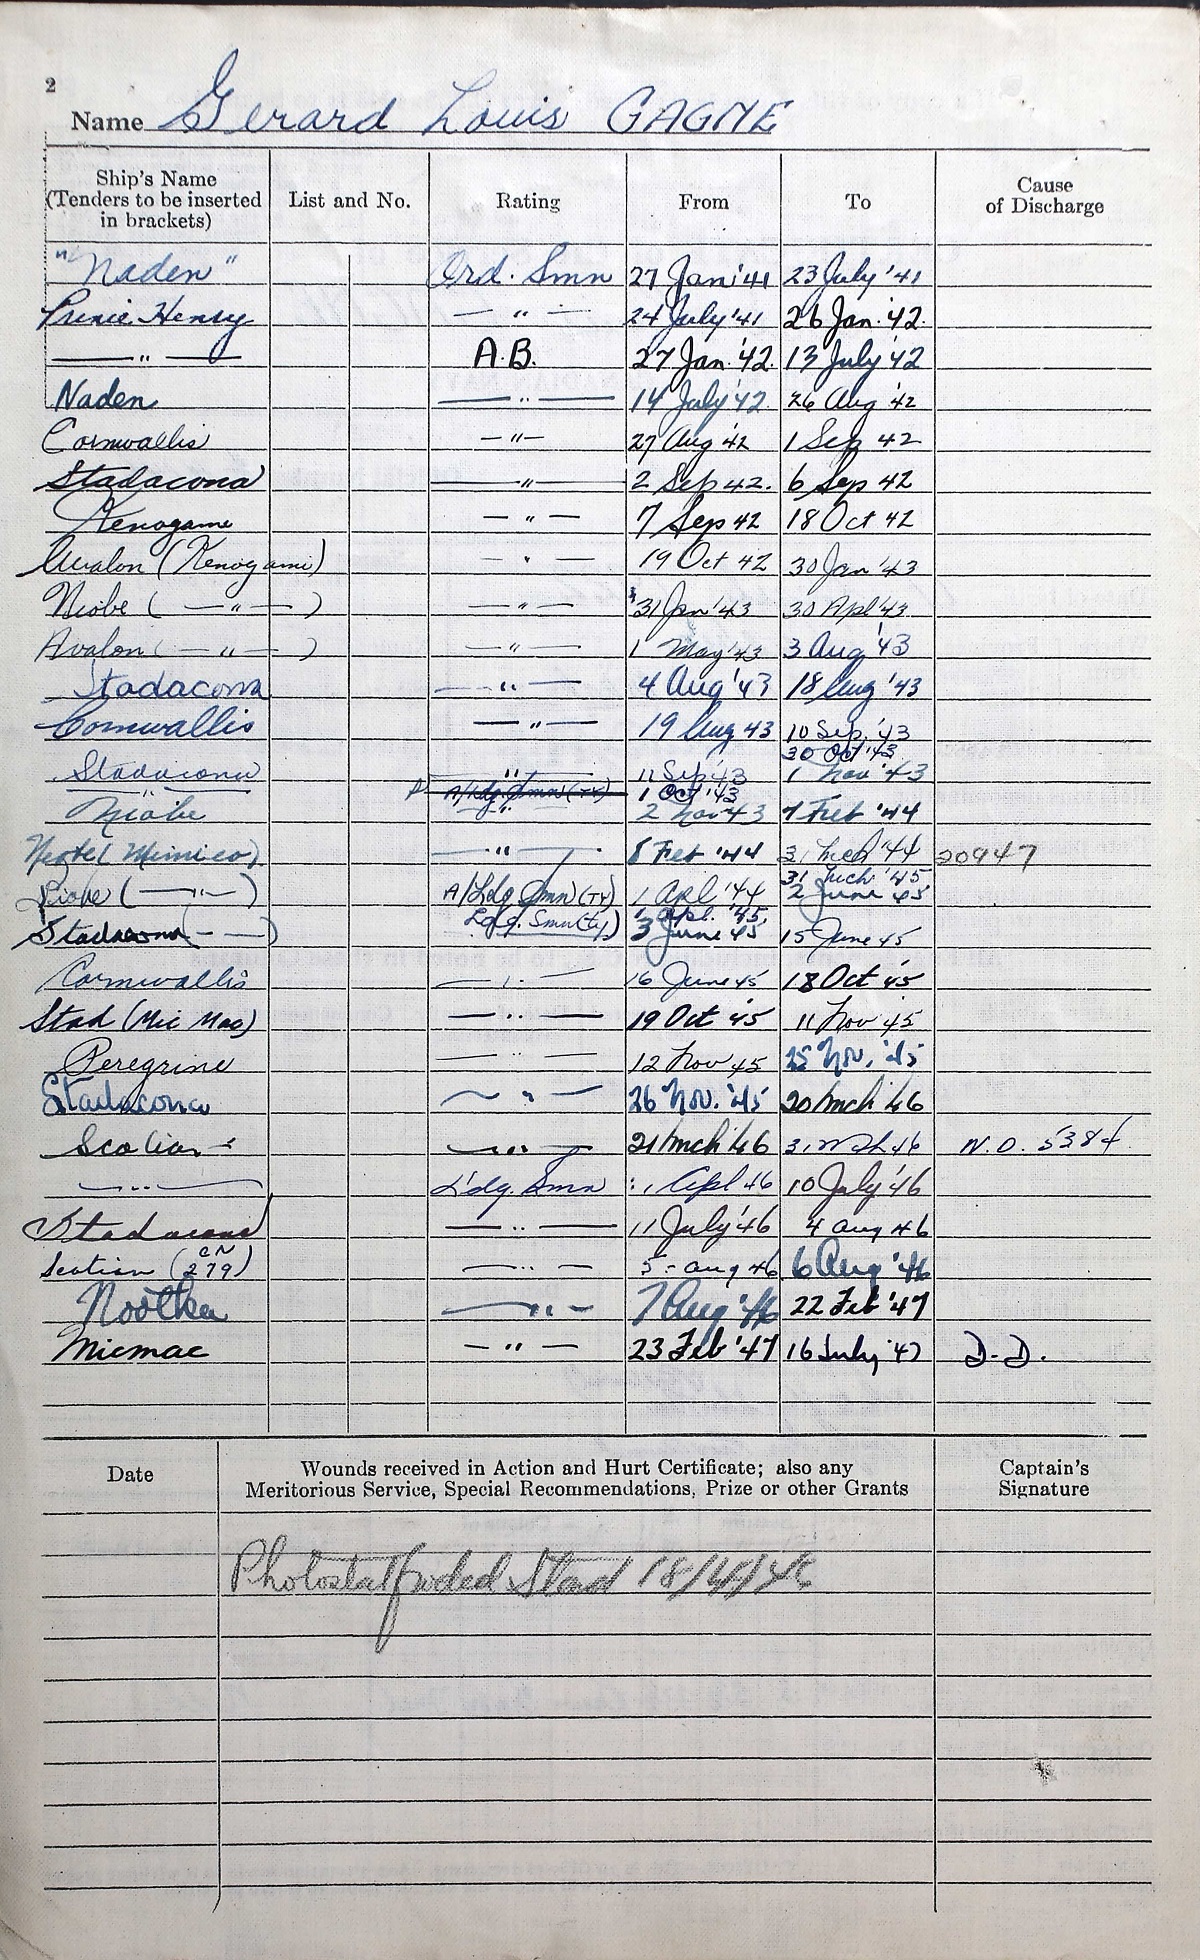 2
Name Gerard Louis GAGNE
Ship's Name
(Tenders to be inserted
in brackets)
List and No.
Rating
From
To
Cause
of Discharge
"Naden" Ord. Smn 27 Jan '41 23 July '41
Prince Henry — " — 24 July '41 26 Jan. '42.
— " — A.B. 27 Jan. '42. 13 July '42
Naden — " — 14 July '42. 26 Aug '42
Cornwallis — " — 27 Aug '42 1 Sep 42
Stadacona — " — 2 Sep 42. 6 Sep 42
Kenogame — " — 7 Sep 42 18 Oct 42
Avalon (Kenogami) — " — 19 Oct 42 30 Jan '43
Niobe ( — " — ) — " — 31 Jan '43 30 Apl '43
Avalon ( — " — ) — " — 1 May '43 3 Aug '43
Stadacona — " — 4 Aug '43 18 Aug '43
Cornwallis — " — 19 Aug 43 10 Sep. '43
30 Oct '43
Stadacona — " — 11 Sep '43 1 Nov '43
— " — A/Ldg. Smn (TY) 1 Oct '43
Niobe " 2 Nov 43 7 Feb '44
(Mimico) — " — 8 Feb '44 31 Mch '44 20947
31 Mch '45
Niobe ( — " — ) A/Ldg Smn (TY) 1 Apl '44 2 June 45
Ldg. Smn (ty) 1 Apl. '45.
Stadacona ( — — ) 3 June 45 15 June 45
Cornwallis — " — 16 June 45 18 Oct 45
Stad (Mic Mac) — " — 19 Oct '45 11 Nov 45
Peregrine — " — 12 Nov 45 25 Nov. '45
Stadacona — " — 26 Nov. '45 20 Mch 46
Scotian — " — 21 Mch 46 31 Mch 46 N.D. 5384
— " — L'dg. Smn 1 Apl 46 10 July '46
Stadacona — " — 11 July '46 4 Aug 46
Scotian (CN 279) — " — 5 - Aug 46 6 Aug '46
Nootka — " — 7 Aug '46 22 Feb '47
Micmac — " — 23 Feb '47 16 July '47 D.D.
Date
Wounds received in Action and Hurt Certificate; also any
Meritorious Service, Special Recommendations, Prize or other Grants
Captain's
Signature
Photostat fwded Stad 18/4/46